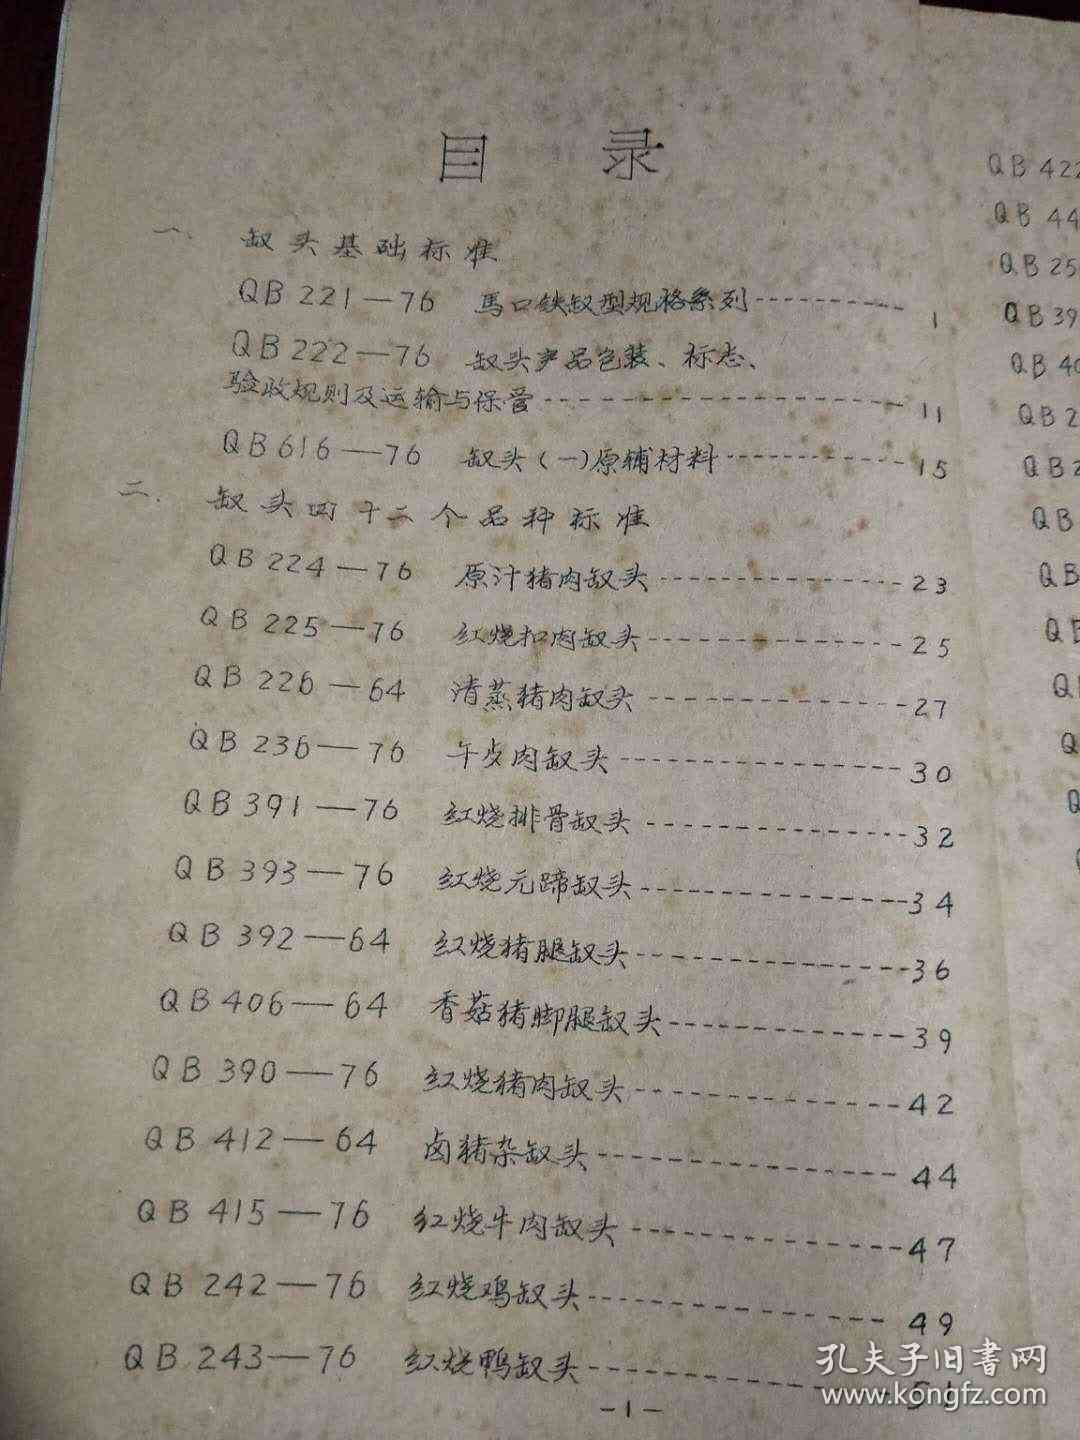 目 录
一、 缸头基础标准
QB 221—76 馬口铁缸型规格系列 1
QB 222—76 缸头产品包装、标志、
验收规则及运输与保管 11
QB 616—76 缸头(一)原辅材料 15
二. 缸头四十二个品种标准
QB 224—76 原汁猪肉缸头 23
QB 225—76 红烧扣肉缸头 25
QB 226—64 清蒸猪肉缸头 27
QB 236—76 午歺肉缸头 30
QB 391—76 红烧排骨缸头 32
QB 393—76 红烧元蹄缸头 34
QB 392—64 红烧猪腿缸头 36
QB 406—64 香菇猪脚腿缸头 39
QB 390—76 红烧猪肉缸头 42
QB 412—64 卤猪杂缸头 44
QB 415—76 红烧牛肉缸头 47
QB 242—76 红烧鸡缸头 49
QB 243—76 红烧鸭缸头 51
—1—
QB 422
QB 44
QB 25
QB 39
QB 40
QB 2
QB 2
QB
QB
QB
孔夫子旧書网
www.kongfz.com